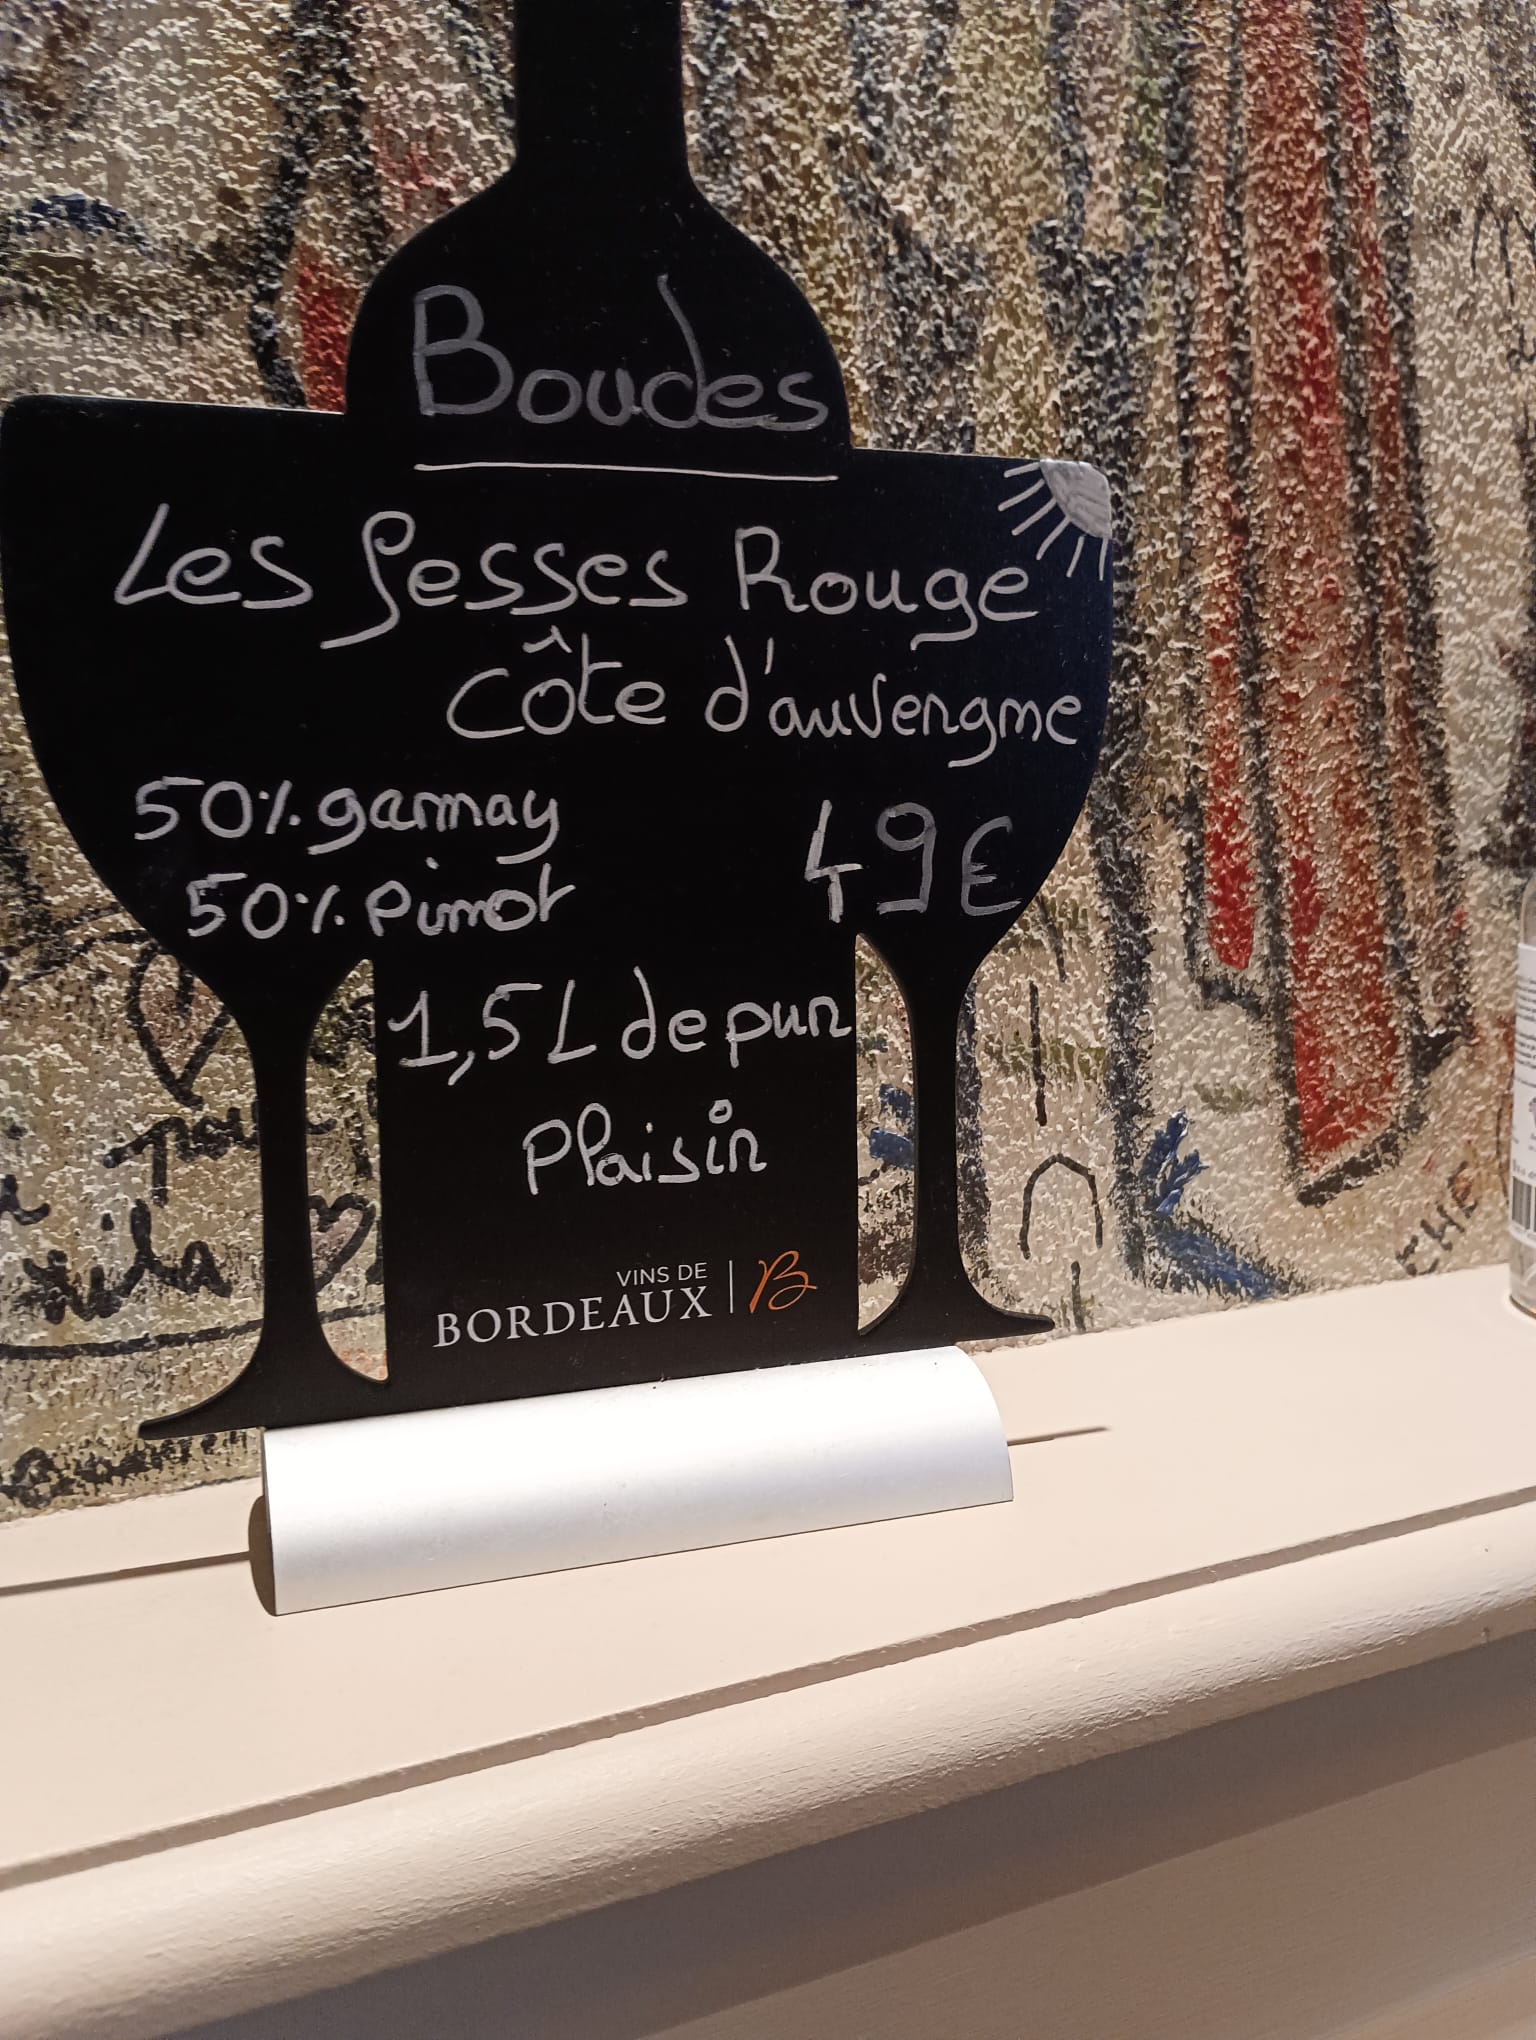 Boudes
Les fesses Rouge
Côte d'auvergne
50% gamay
50% Pinot
49€
1,5 L de pur
Plaisir
VINS DE
BORDEAUX | B